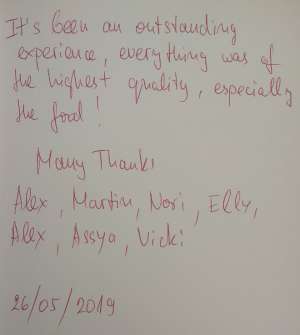 It's been an outstanding
experience, everything was of
the highest quality, especially
the food!
Many Thanks
Alex, Martin, Nori, Elly,
Alex, Assya, Vicki
26/05/2019